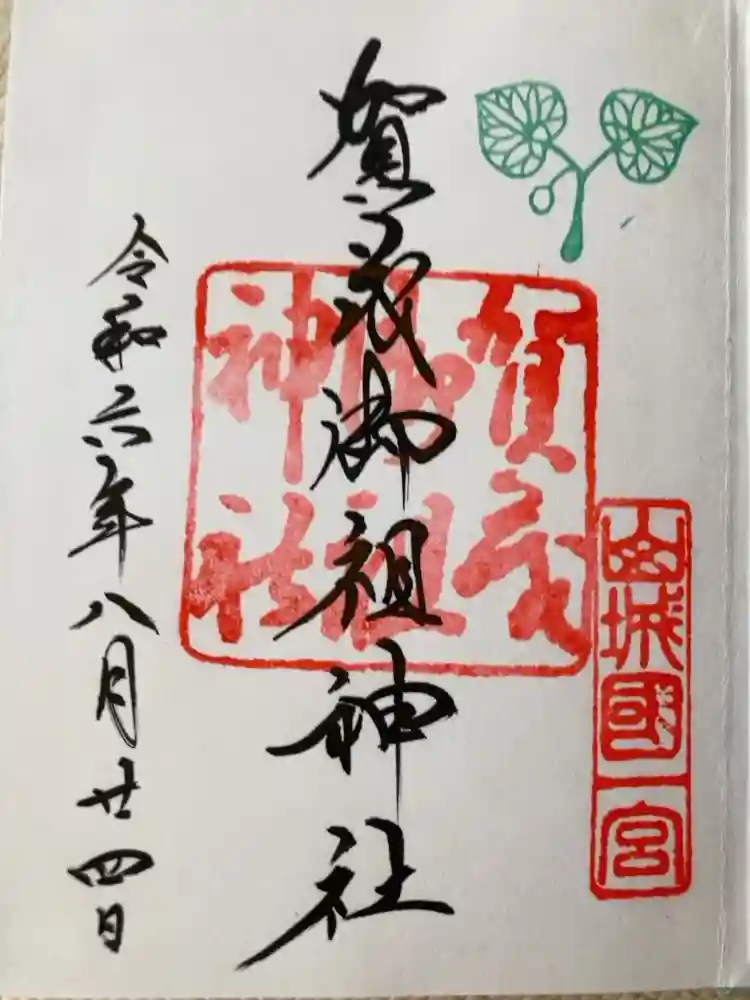 山城國一宮
賀茂御祖神社
賀茂
御祖
神社
令和六年八月廿四日